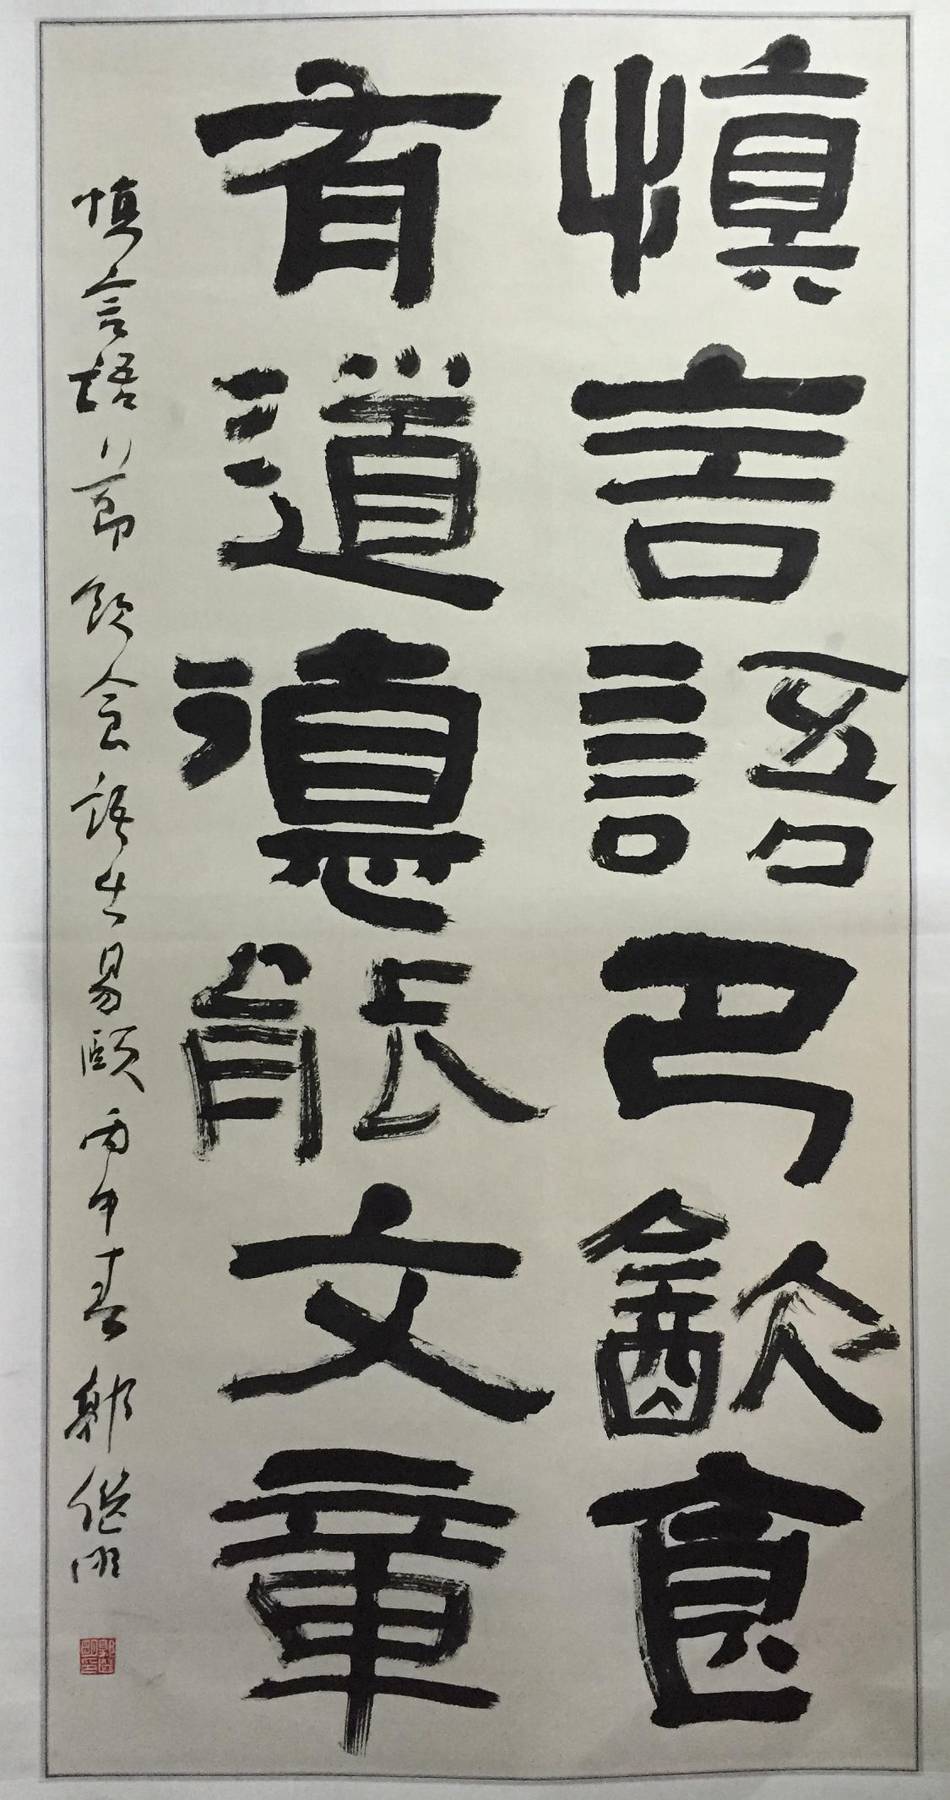 慎言語卪㱃食
有道德能文章
慎言語節飲食語出易頤丙申春郭繼明